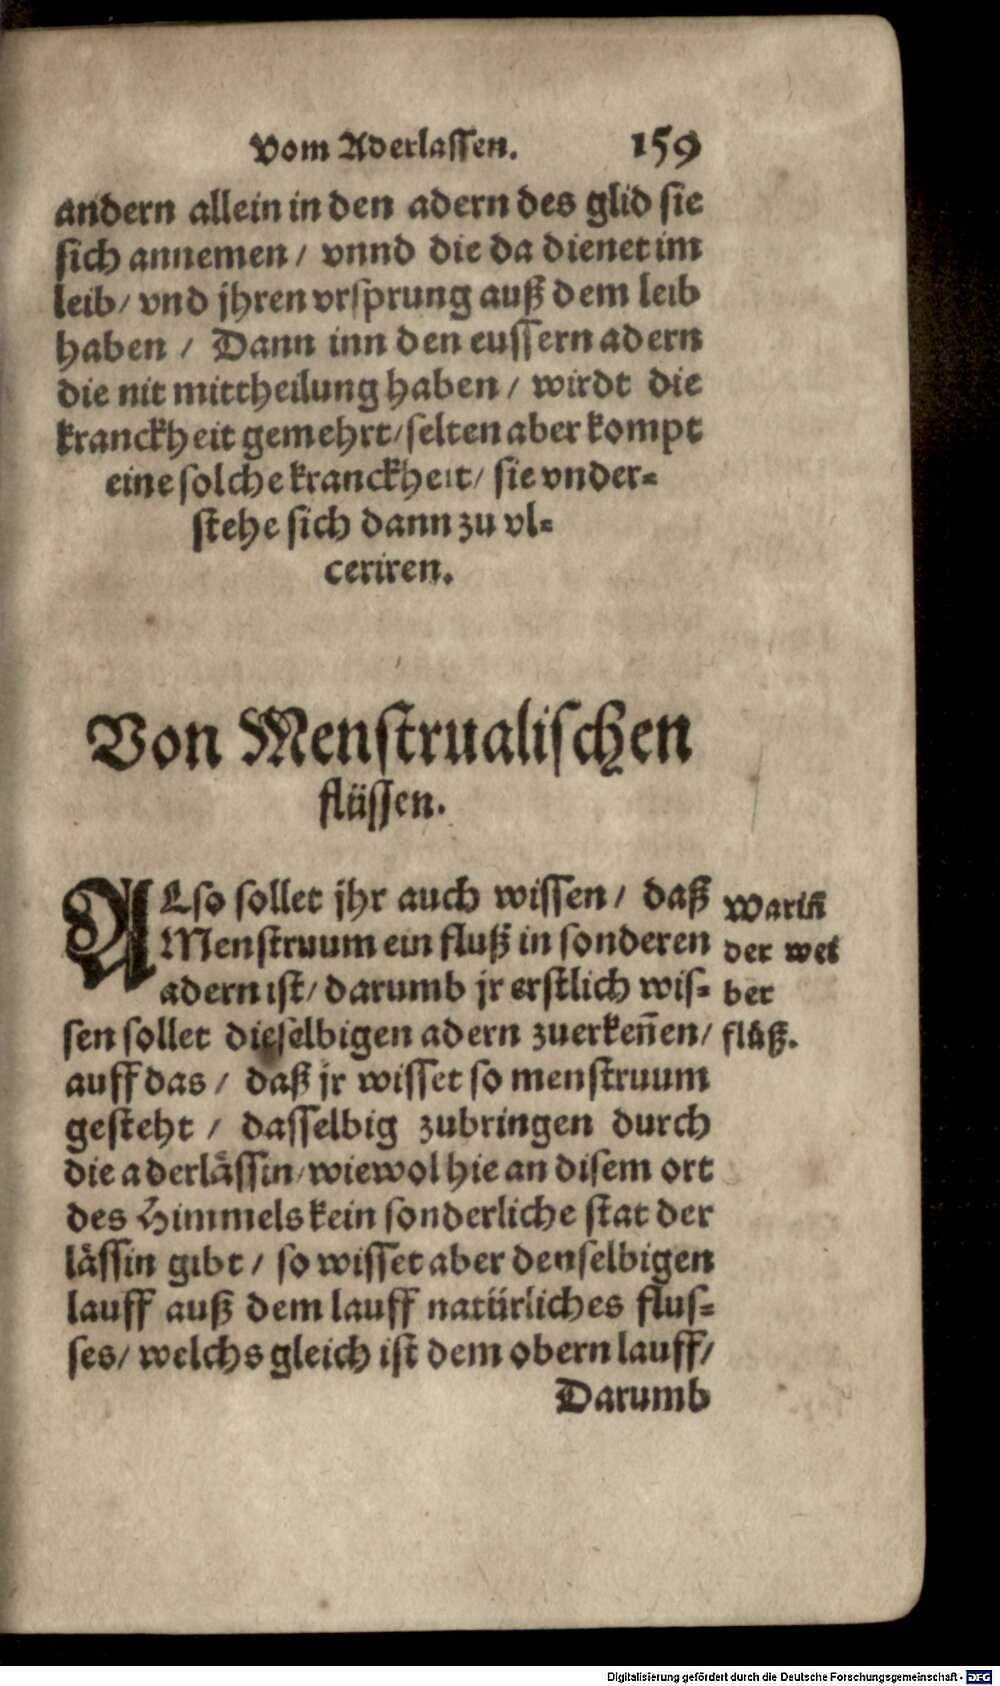 Vom Aderlassen. 159
andern allein in den adern des glid sie
sich annemen / vnnd die da dienet im
leib / vnd jhren vrsprung auß dem leib
haben / Dann inn den eussern adern
die nit mittheilung haben / wirdt die
kranckheit gemehrt / selten aber kompt
eine solche kranckheit / sie vnder-
stehe sich dann zu vl-
ceriren.
Von Menstrualischen
flüssen.
ALso sollet jhr auch wissen / daß
Menstruum ein fluß in sonderen
adern ist / darumb jr erstlich wis-
sen sollet dieselbigen adern zuerkeñen /
auff das / daß jr wisset so menstruum
gesteht / dasselbig zubringen durch
die aderlässin / wiewol hie an disem ort
des Himmels kein sonderliche stat der
lässin gibt / so wisset aber denselbigen
lauff auß dem lauff natürliches flus-
ses / welchs gleich ist dem obern lauff /
Darumb
Wariñ
der wei
ber
flüß.
Digitalisierung gefördert durch die Deutsche Forschungsgemeinschaft - DFG